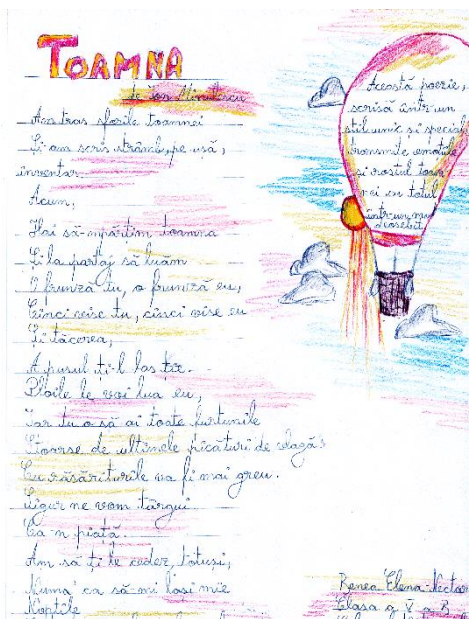 TOAMNA
de Ion Minulescu
Am tras sforile toamnei
Și am scris strâmb, pe ușă,
inventar.
Acum,
Hai să-mpărțim toamna
Și la partaj să luăm
O frunză tu, o frunză eu,
Cinci vise tu, cinci vise eu
Și tăcerea,
Apusul ți-l las ție.
Ploile le voi lua eu,
Iar tu o să ai toate furtunile
Stoarse de ultimele picături de vlagă.
Cu răsăriturile va fi mai greu.
Sigur ne vom târgui
Ca-n piață.
Am să ți le cedez, totuși,
Numa' ca să-mi lași mie
Nopțile
Această poezie,
scrisă într-un
stil unic și special
transmite emoțiile
și rostul toam
nei cu totul
într-un mod
deosebit
Benea Elena-Nectaria
Clasa a V a B